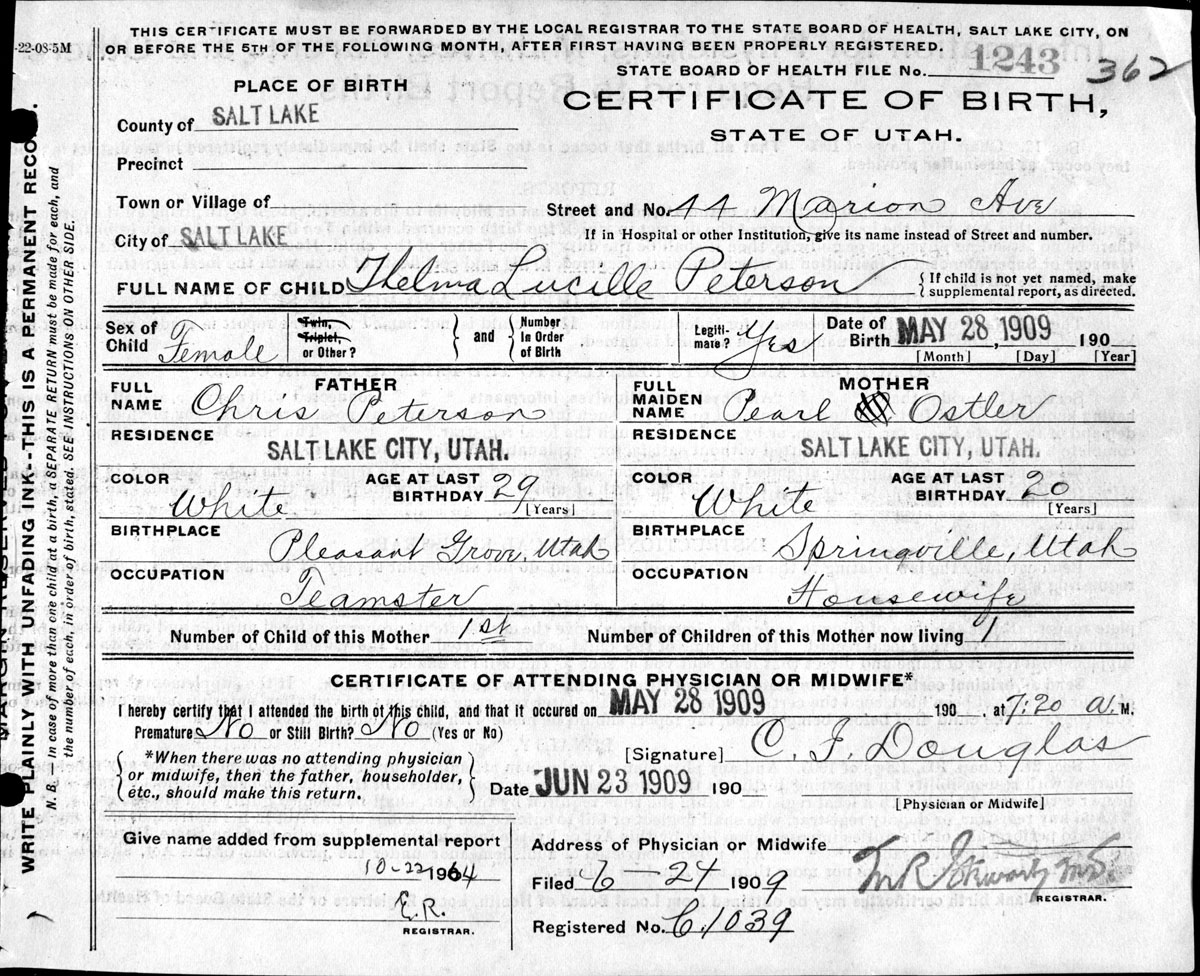 THIS CERTIFICATE MUST BE FORWARDED BY THE LOCAL REGISTRAR TO THE STATE BOARD OF HEALTH, SALT LAKE CITY, ON
OR BEFORE THE 5TH OF THE FOLLOWING MONTH, AFTER FIRST HAVING BEEN PROPERLY REGISTERED.
-22-08-5M
STATE BOARD OF HEALTH FILE No. 1243 362
PLACE OF BIRTH
CERTIFICATE OF BIRTH,
STATE OF UTAH.
County of SALT LAKE
Precinct
Town or Village of
Street and No. 44 Marion Ave
City of SALT LAKE
If in hospital or other Institution, give its name instead of Street and number.
FULL NAME OF CHILD Thelma Lucille Peterson
If child is not yet named, make
supplemental report, as directed.
Sex of Child Female
Twin,
Triplet,
or Other?
and
Number
in Order
of Birth
Legiti-
mate? Yes
Date of
Birth MAY 28 1909 190
[Month] [Day] [Year]
FATHER
FULL
NAME Chris Peterson
RESIDENCE
SALT LAKE CITY, UTAH.
COLOR White
AGE AT LAST
BIRTHDAY 29
[Years]
BIRTHPLACE
Pleasant Grove, Utah
OCCUPATION
Teamster
MOTHER
FULL
MAIDEN
NAME Pearl Ostler
RESIDENCE
SALT LAKE CITY, UTAH.
COLOR White
AGE AT LAST
BIRTHDAY. 20
[Years]
BIRTHPLACE
Springville, Utah
OCCUPATION
Housewife
Number of Child of this Mother 1st Number of Children of this Mother now living 1
CERTIFICATE OF ATTENDING PHYSICIAN OR MIDWIFE*
I hereby certify that I attended the birth of this child, and that it occured on MAY 28 1909 190 , at 7:20 A. M.
Premature? No or Still Birth? No (Yes or No)
*When there was no attending physician
or midwife, then the father, householder,
etc., should make this return.
[Signature] C. F. Douglas
Date JUN 23 1909 190
[Physician or Midwife]
Give name added from supplemental report
10-22 1964
E.R.
REGISTRAR.
Address of Physician or Midwife
Filed 6 24 1909
REGISTRAR.
Registered No. C. 1039
WRITE PLAINLY WITH UNFADING INK-THIS IS A PERMANENT RECORD.
N. B. In case of more than one child at a birth, a SEPARATE RETURN must be made for each, and
the number of each, in order of birth, stated. SEE INSTRUCTIONS ON OTHER SIDE.